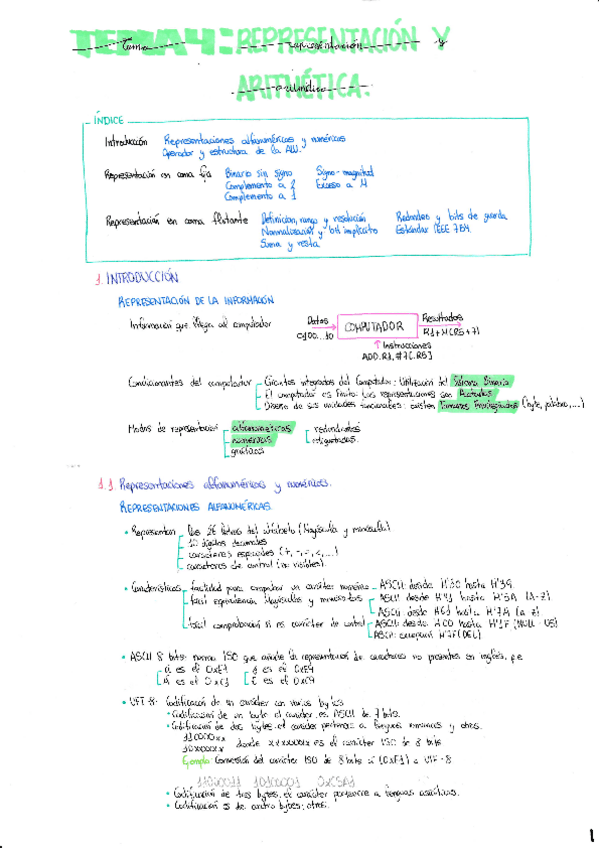 TEMA 4: REPRESENTACIÓN Y
Tema representación y
ARITMÉTICA.
aritmética
ÍNDICE
Introducción Representaciones alfanuméricas y numéricas
Operador y estructura de la ALU.
Representación en coma fija Binario sin signo Signo-magnitud
Complemento a 2 Exceso a M
Complemento a 1
Representación en coma flotante Definición, rango y resolución Redondeo y bits de guarda
Normalización y bit implícito Estándar IEEE 754.
Suma y resta
1. INTRODUCCIÓN
REPRESENTACIÓN DE LA INFORMACIÓN
Información que llega al computador Datos COMPUTADOR Resultados
C100...10 R1+M(R5+7)
Instrucciones
ADD.R1,#7[.R5]
Condicionantes del computador Circuitos integrados del Computador: Utilización del Sistema Binario
El computador es finito: las representaciones son Acotadas
Diseño de sus unidades funcionales: existen Tamaños Privilegiados (byte, palabra,...)
Modos de representación alfanuméricas redundantes
numéricas
gráficas
1.1 Representaciones alfanuméricas y numéricas.
REPRESENTACIONES ALFANUMÉRICAS.
• Representan las 26 letras del alfabeto (Mayúscula y minúscula)
10 dígitos decimales
caracteres especiales (+, -, <, ...)
caracteres de control (no visibles).
• Características facilidad para comprobar un carácter numérico ASCII desde H'30 hasta H'39
fácil equivalencia Mayúsculas y minúsculas ASCII desde H'41 hasta H'5A (A-Z)
ASCII desde H'61 hasta H'7A (a-z)
fácil comprobación si es carácter de control ASCII desde H'00 hasta H'1F (NULL - US)
ASCII H'7F (DEL)
• ASCII 8 bits: norma ISO que añade la representación de caracteres no presentes en inglés, p.e
• UFT-8: Codificación de un carácter con varios bytes
• Codificación de un byte el carácter es ASCII de 7 bits.
• Codificación de dos bytes: el carácter pertenece a lenguas romances y otras.
110000xx donde xxxxxxxx es el carácter ISO de 8 bits
10xxxxxx
Ejemplo: Conversión del carácter ISO de 8 bits ñ (0xF1) a UTF-8
11000011 10110001
• Codificación de tres bytes: el carácter pertenece a lenguas asiáticas.
• Codificación de cuatro bytes: otros.
1